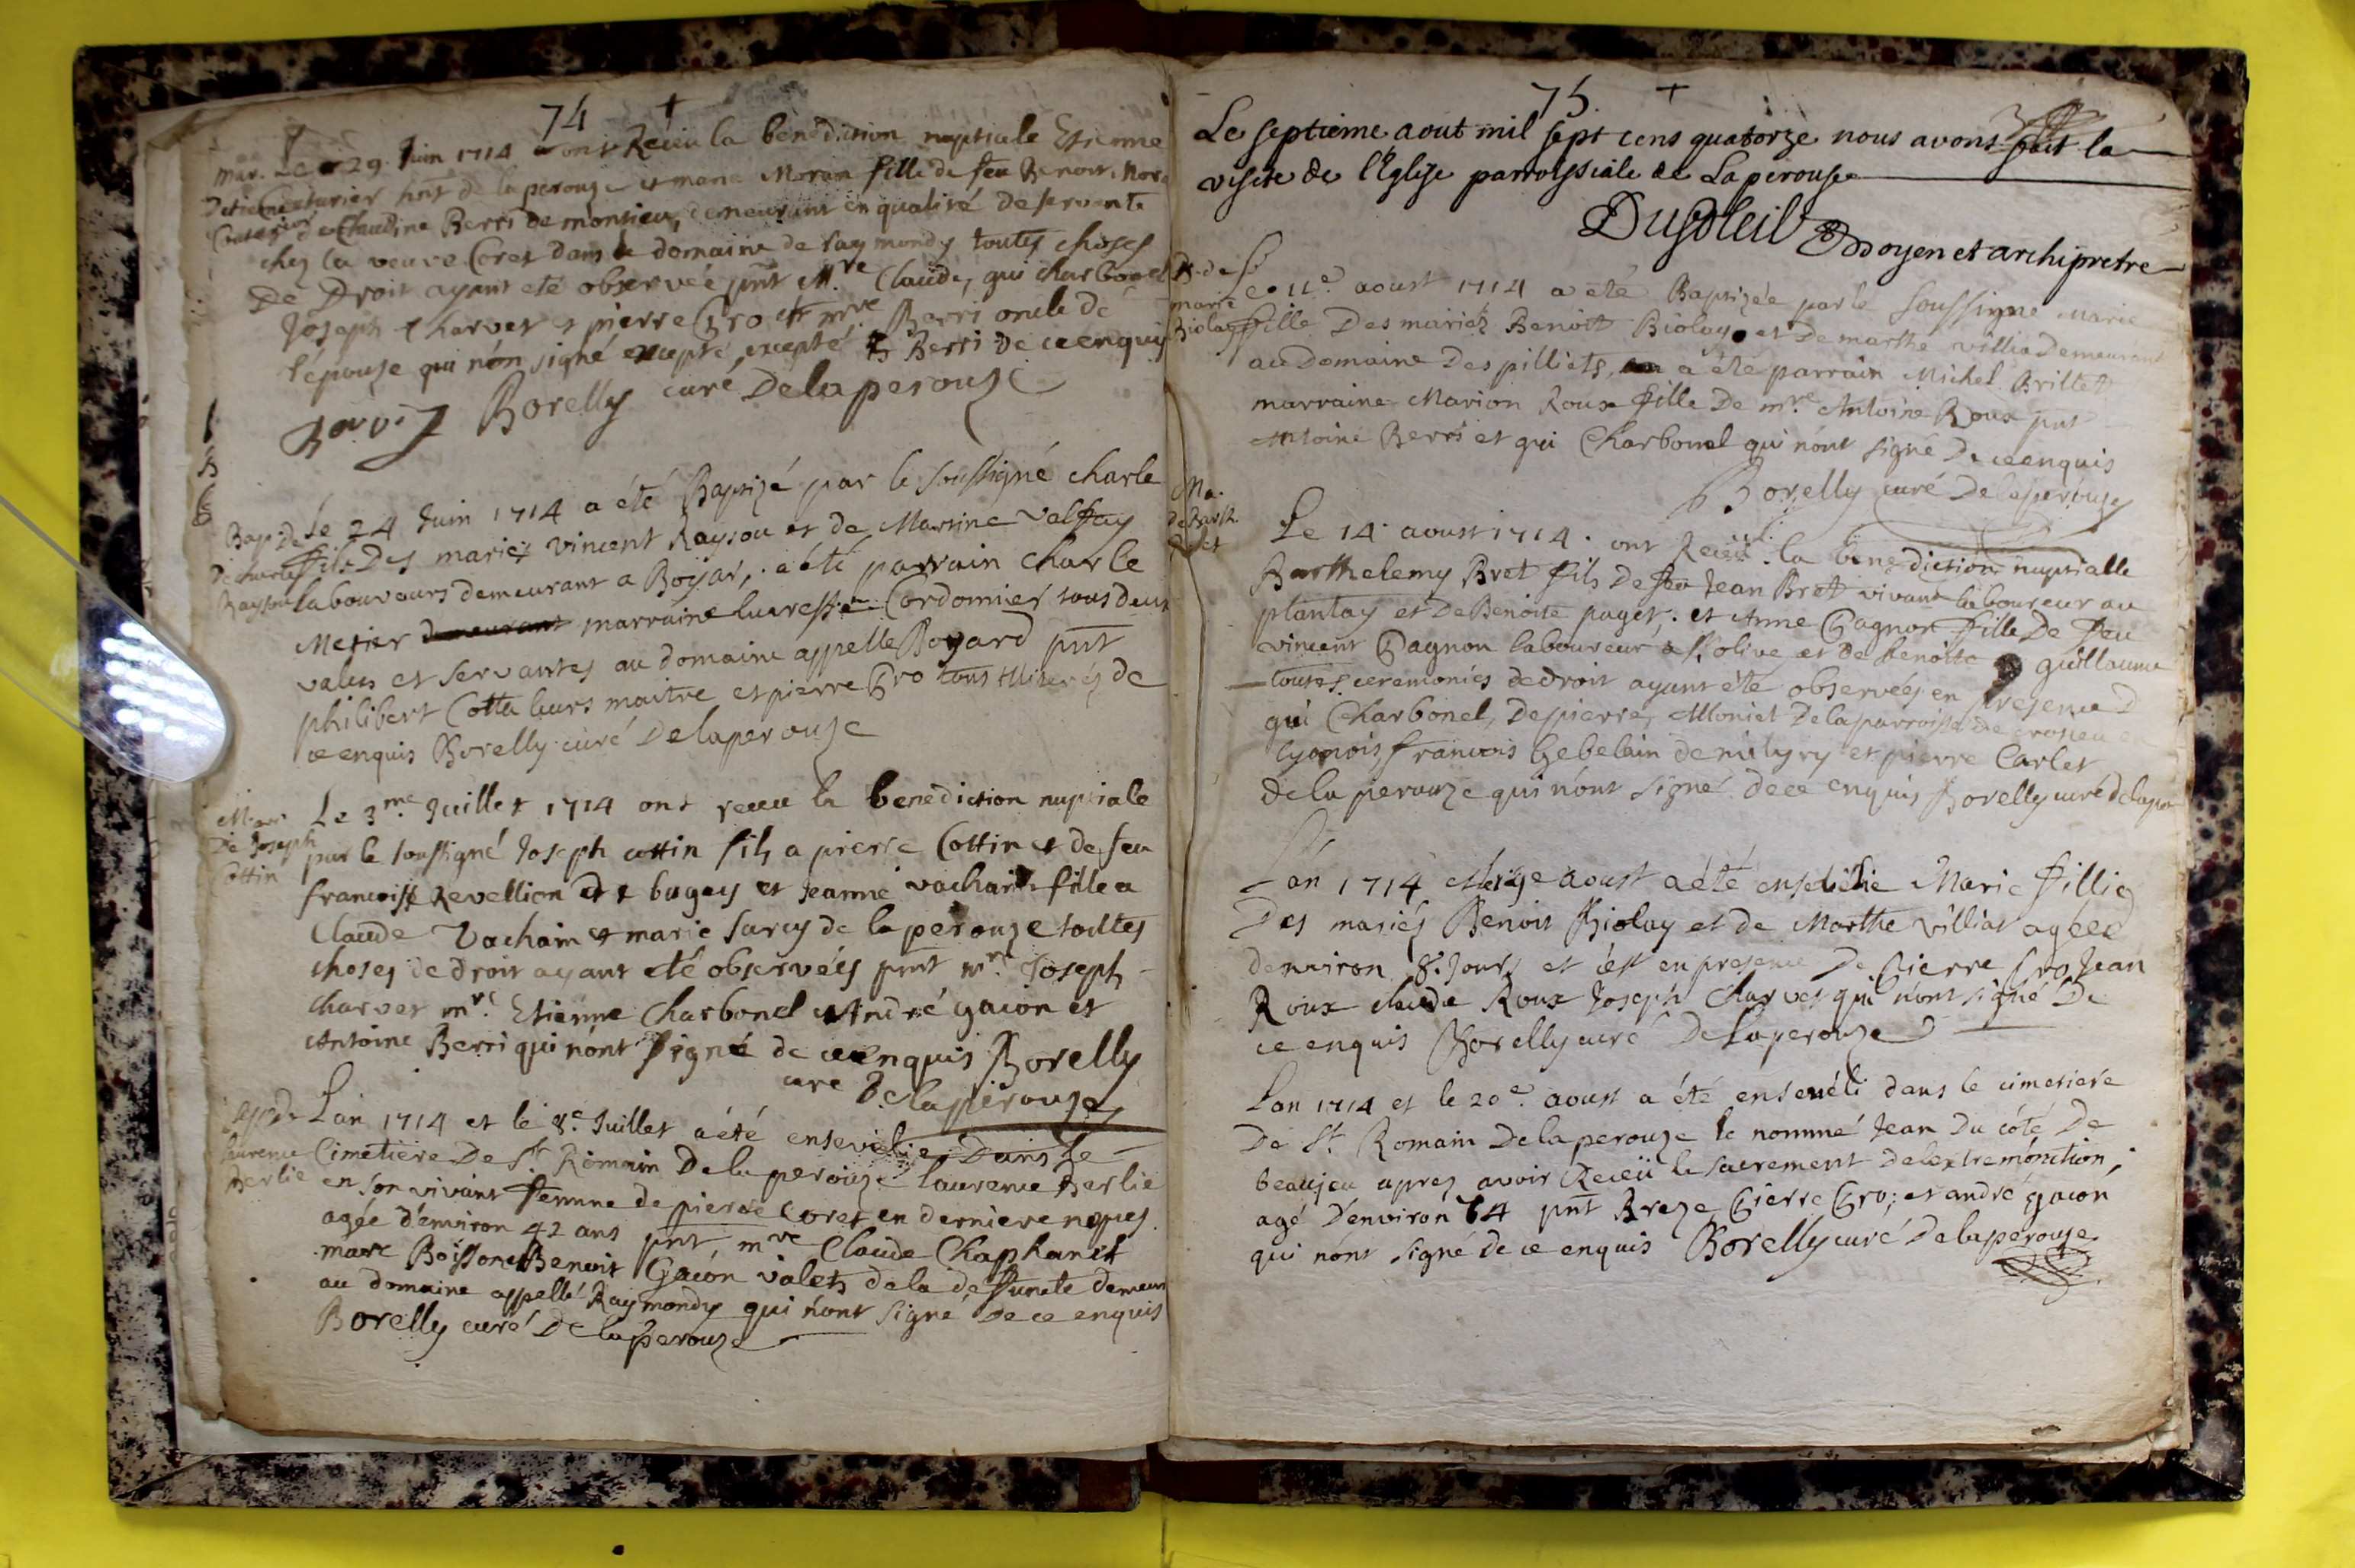 74 +
mar. Le 29. Juin 1714 ont Receu la benediction nuptiale Etienne
hnt de la perouze et marie Moran fille de feu Benoit Mora
de Claudine Berri de monsieu, demeurant en qualité de servante
chez la veuve Coret dans le domaine de raymondy toutes choses
De Droit ayant eté observeé pnt Mre Claude, gui charbonel
Joseph charvet et pierre Gro et mre Berri oncle de
l'épouze qui nón signé excepté, excepté Berri de ce enquis
Borelly curé Delaperouze
Bap. De Le 24 Juin 1714 a été Baptizé par le soussigné charle
De charle fils Des mariéz vincent Raysou et de Martine valfay
Raysou laboureurs demeurant a Boyar, a été parrain charle
Metier marraine lucresse Cordonnier tous deux
valets et servantes au domaine appelle Boyard pnt
philibert Cotta leurs maitre et pierre Gro tous de
ce enquis Borelly curé Delaperouze
Mari Le 3me. Juillet 1714 ont receu la benediction nuptiale
De Joseph par le soussigné Joseph cottin fils a pierre Cottin et de feu
Cottin francoise Revellion et bugey et Jeanne vachain fille a
Claude Vachain et marie surcy de la perouze toutes
choses de droit ayant eté observéés pnt mre Joseph
charvet mre. Etienne Charbonel et André gacon et
Antoine Berri qui nónt signé de ce enquis Borelly
curé Delaperouze
Lan 1714 et le 8e. Juillet a été ensevelie Dans le
laurence Cimetiere De St. Romain Delaperouze laurence Berlie
Berlie en son vivant femme de pierre Coret en derniere nopces
agée d'environ 42 ans pnt, mre Claude Chaphanet
marc Boisson et Benoit Gacón valets dela deffuncte demeur
au domaine appellé Raymondy qui nónt signé De ce enquis
Borelly curé Delaperouze
75. +
Le septieme aout mil sept cens quatorze nous avons fait la
visite de l'Eglise parroissiale de Laperouse
Dusoleil doyen et archipretre
B. de Le 11e. aoust 1714 a été Baptizée par le soussigne Marie
marie fille Des mariéz Benoit Biolay et De marthe villia Demeurant
Biolay au Domaine Des pilliets, a été parrain Michel Brillet
marraine Marion Roux fille De mre. Antoine Roux pnt
Antoine Berri et gui Charbonel qui nónt signé De ce enquis
Borelly curé Delaperouze
Ma. Le 14 aoust 1714. ont Receü la benediction nuptialle
de Barth. Barthelemy Bret fils De feu Jean Bret vivant laboureur au
Bret plantay et De Benoite paget. et Anne Gagnon fille De feu
vincent Gagnon laboureur a St. olive et de benoite guillaume
toutes ceremoniés de droit ayant été observéés en presence D
gui Charbonel, De pierre Moniet De la parroisse de crosieu
Lyonois, francois Gebelain de et pierre Carlet
de la perouze qui nónt signé de ce enquis Borelly curé Delaper
Lan 1714 aoust a été ensevelie Marie fillie
Des mariéz Benoit Biolay et de Marthe villiat agéee
denviron 8. Jours et cést en presence De Pierre Gro Jean
Roux claude Roux Joseph Charvet qui nónt signé De
ce enquis Borelly curé De laperouze
Lan 1714 et le 20e. aoust a été enseveli dans le cimetiere
De St. Romain Delaperouze le nommé Jean Du côté De
beaujeu aprez avoir Receü le sacrement delextremónction,
agé D'environ 64 pnt Breze Pierre Gro; et andré gacon
qui nónt signé de ce enquis Borelly curé De laperouze